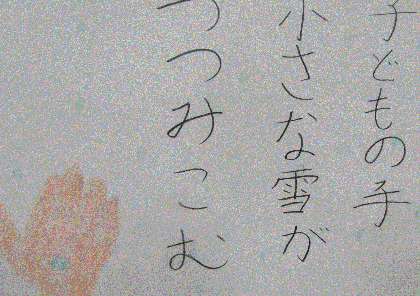 子どもの手
小さな雪が
つつみこむ